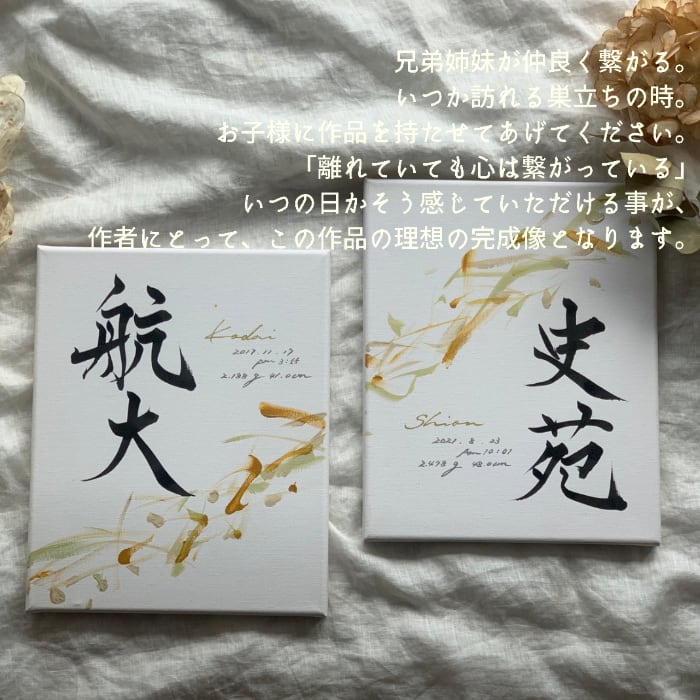 兄弟姉妹が仲良く繋がる。
いつか訪れる巣立ちの時。
お子様に作品を持たせてあげてください。
「離れていても心は繋がっている」
いつの日かそう感じていただける事が、
作者にとって、この作品の理想の完成像となります。
航大
Kodai
2017.11.17
2.188g 41.0cm
史苑
Shion
2021.8.23
pm10:01
2.498g 48.0cm